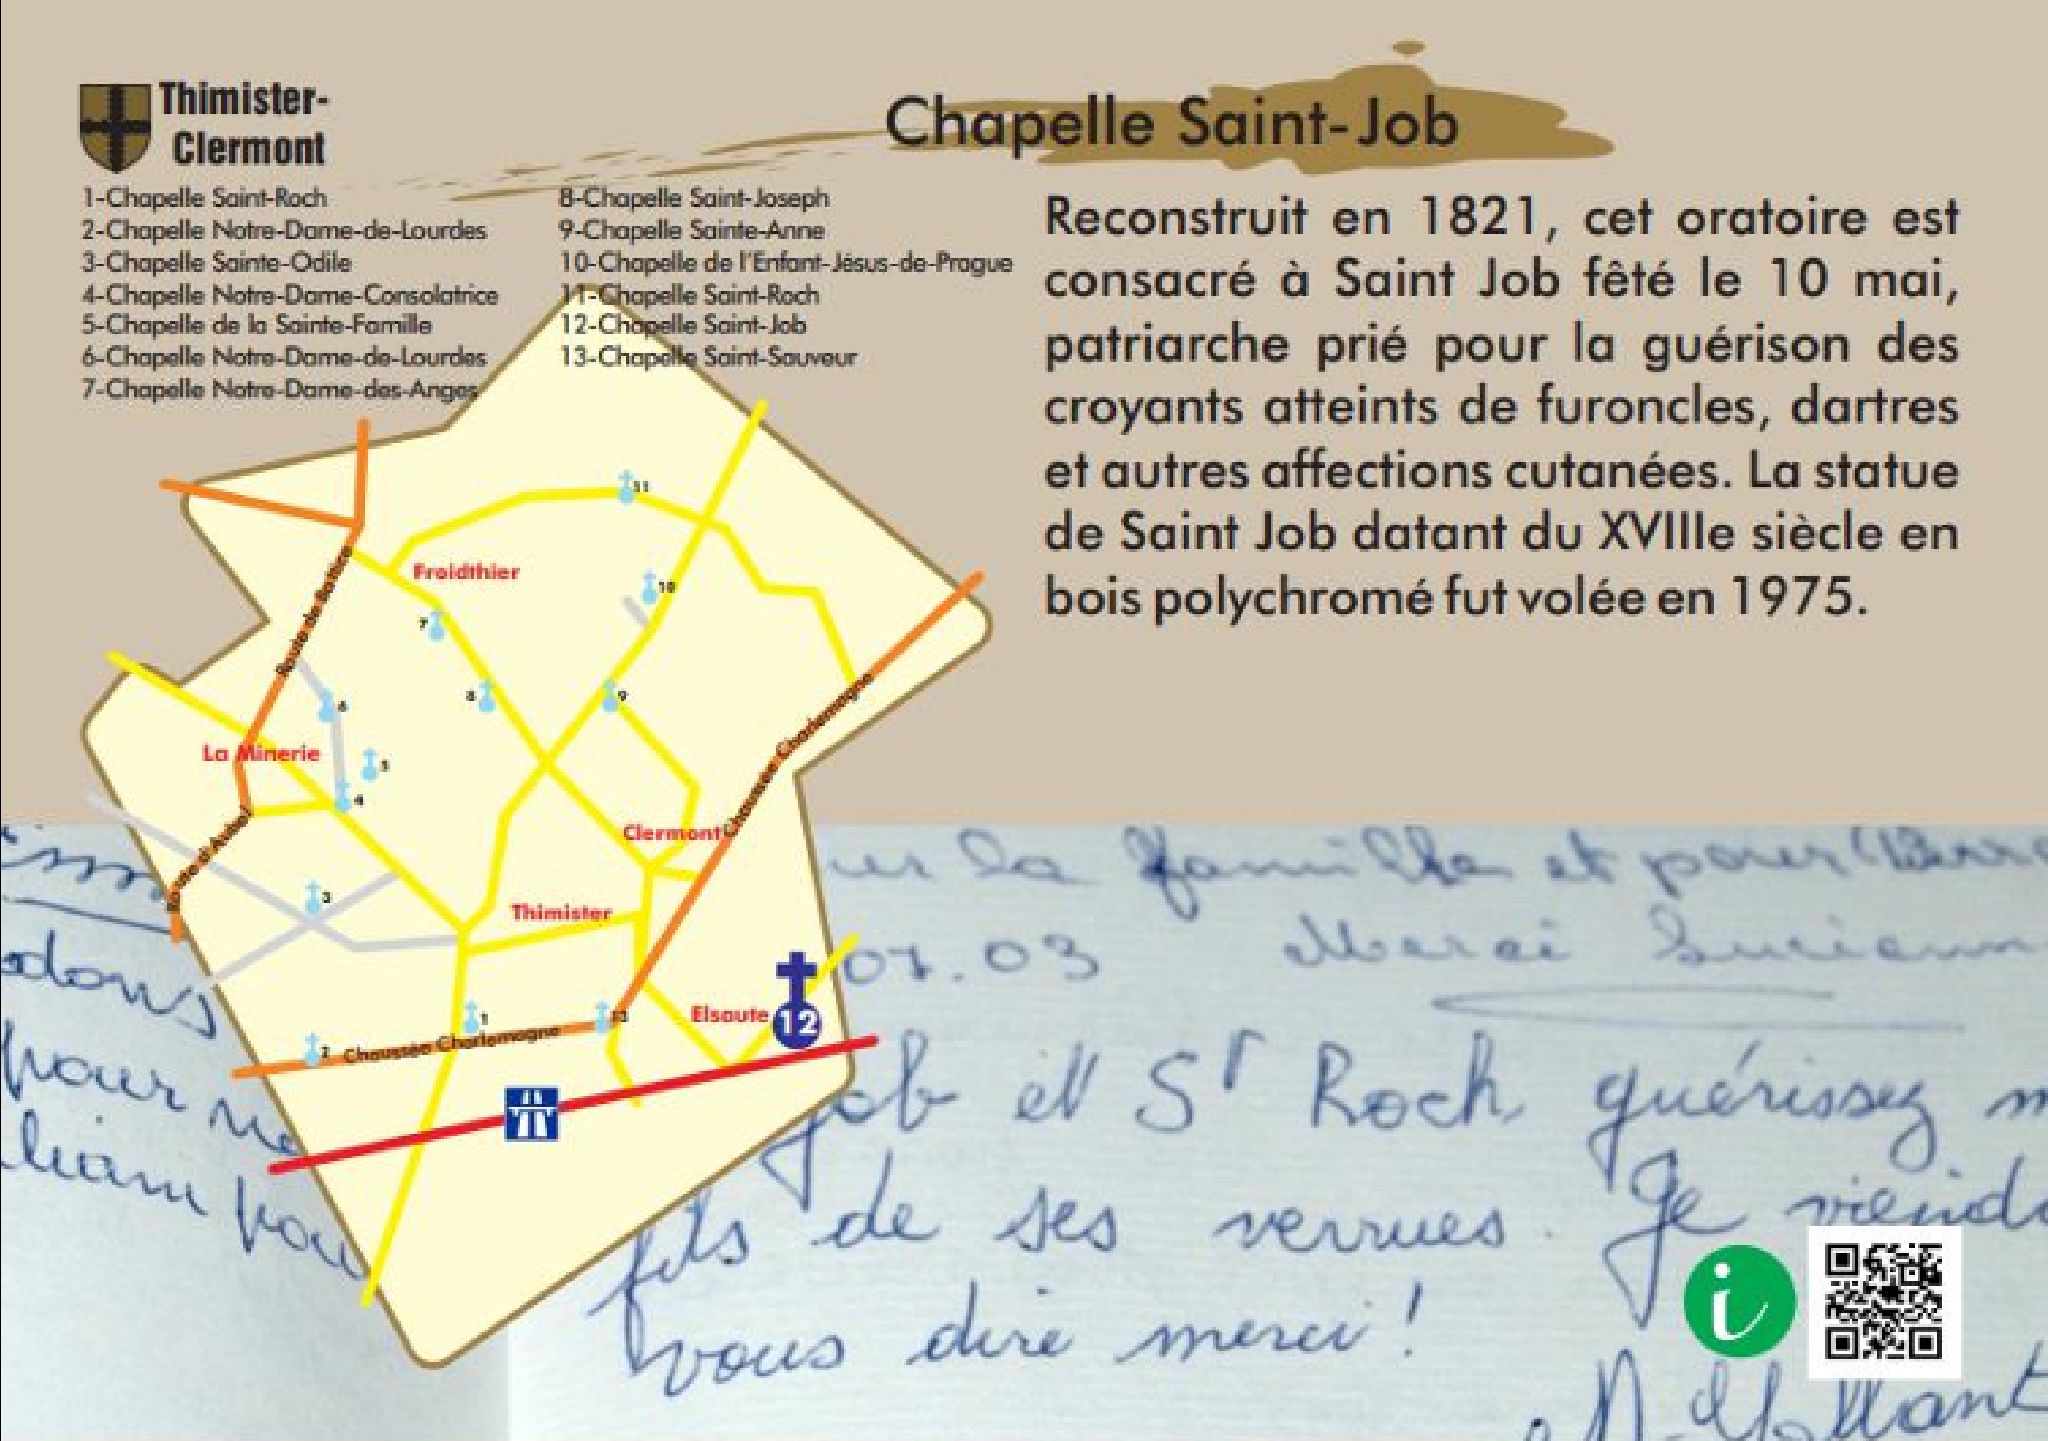 Thimister-
Clermont
Chapelle Saint-Job
1-Chapelle Saint-Roch
2-Chapelle Notre-Dame-de-Lourdes
3-Chapelle Sainte-Odile
4-Chapelle Notre-Dame-Consolatrice
5-Chapelle de la Sainte-Famille
6-Chapelle Notre-Dame-de-Lourdes
7-Chapelle Notre-Dame-des-Anges
8-Chapelle Saint-Joseph
9-Chapelle Sainte-Anne
10-Chapelle de l'Enfant-Jésus-de-Prague
11-Chapelle Saint-Roch
12-Chapelle Saint-Job
13-Chapelle Saint-Sauveur
Reconstruit en 1821, cet oratoire est
consacré à Saint Job fêté le 10 mai,
patriarche prié pour la guérison des
croyants atteints de furoncles, dartres
et autres affections cutanées. La statue
de Saint Job datant du XVIIIe siècle en
bois polychromé fut volée en 1975.
11
Froidthier
10
7
Route de Battice
8
9
6
La Minerie
5
4
Chaussée Charlemagne
Clermont
Route d'Aubel
3
Thimister
Elsaute
12
1
13
2
Chaussée Charlemagne
la famille et pour
07.03 Merci
pour
Job et St Roch guérissez
fils de ses verrues. Je
vous dire merci!
i